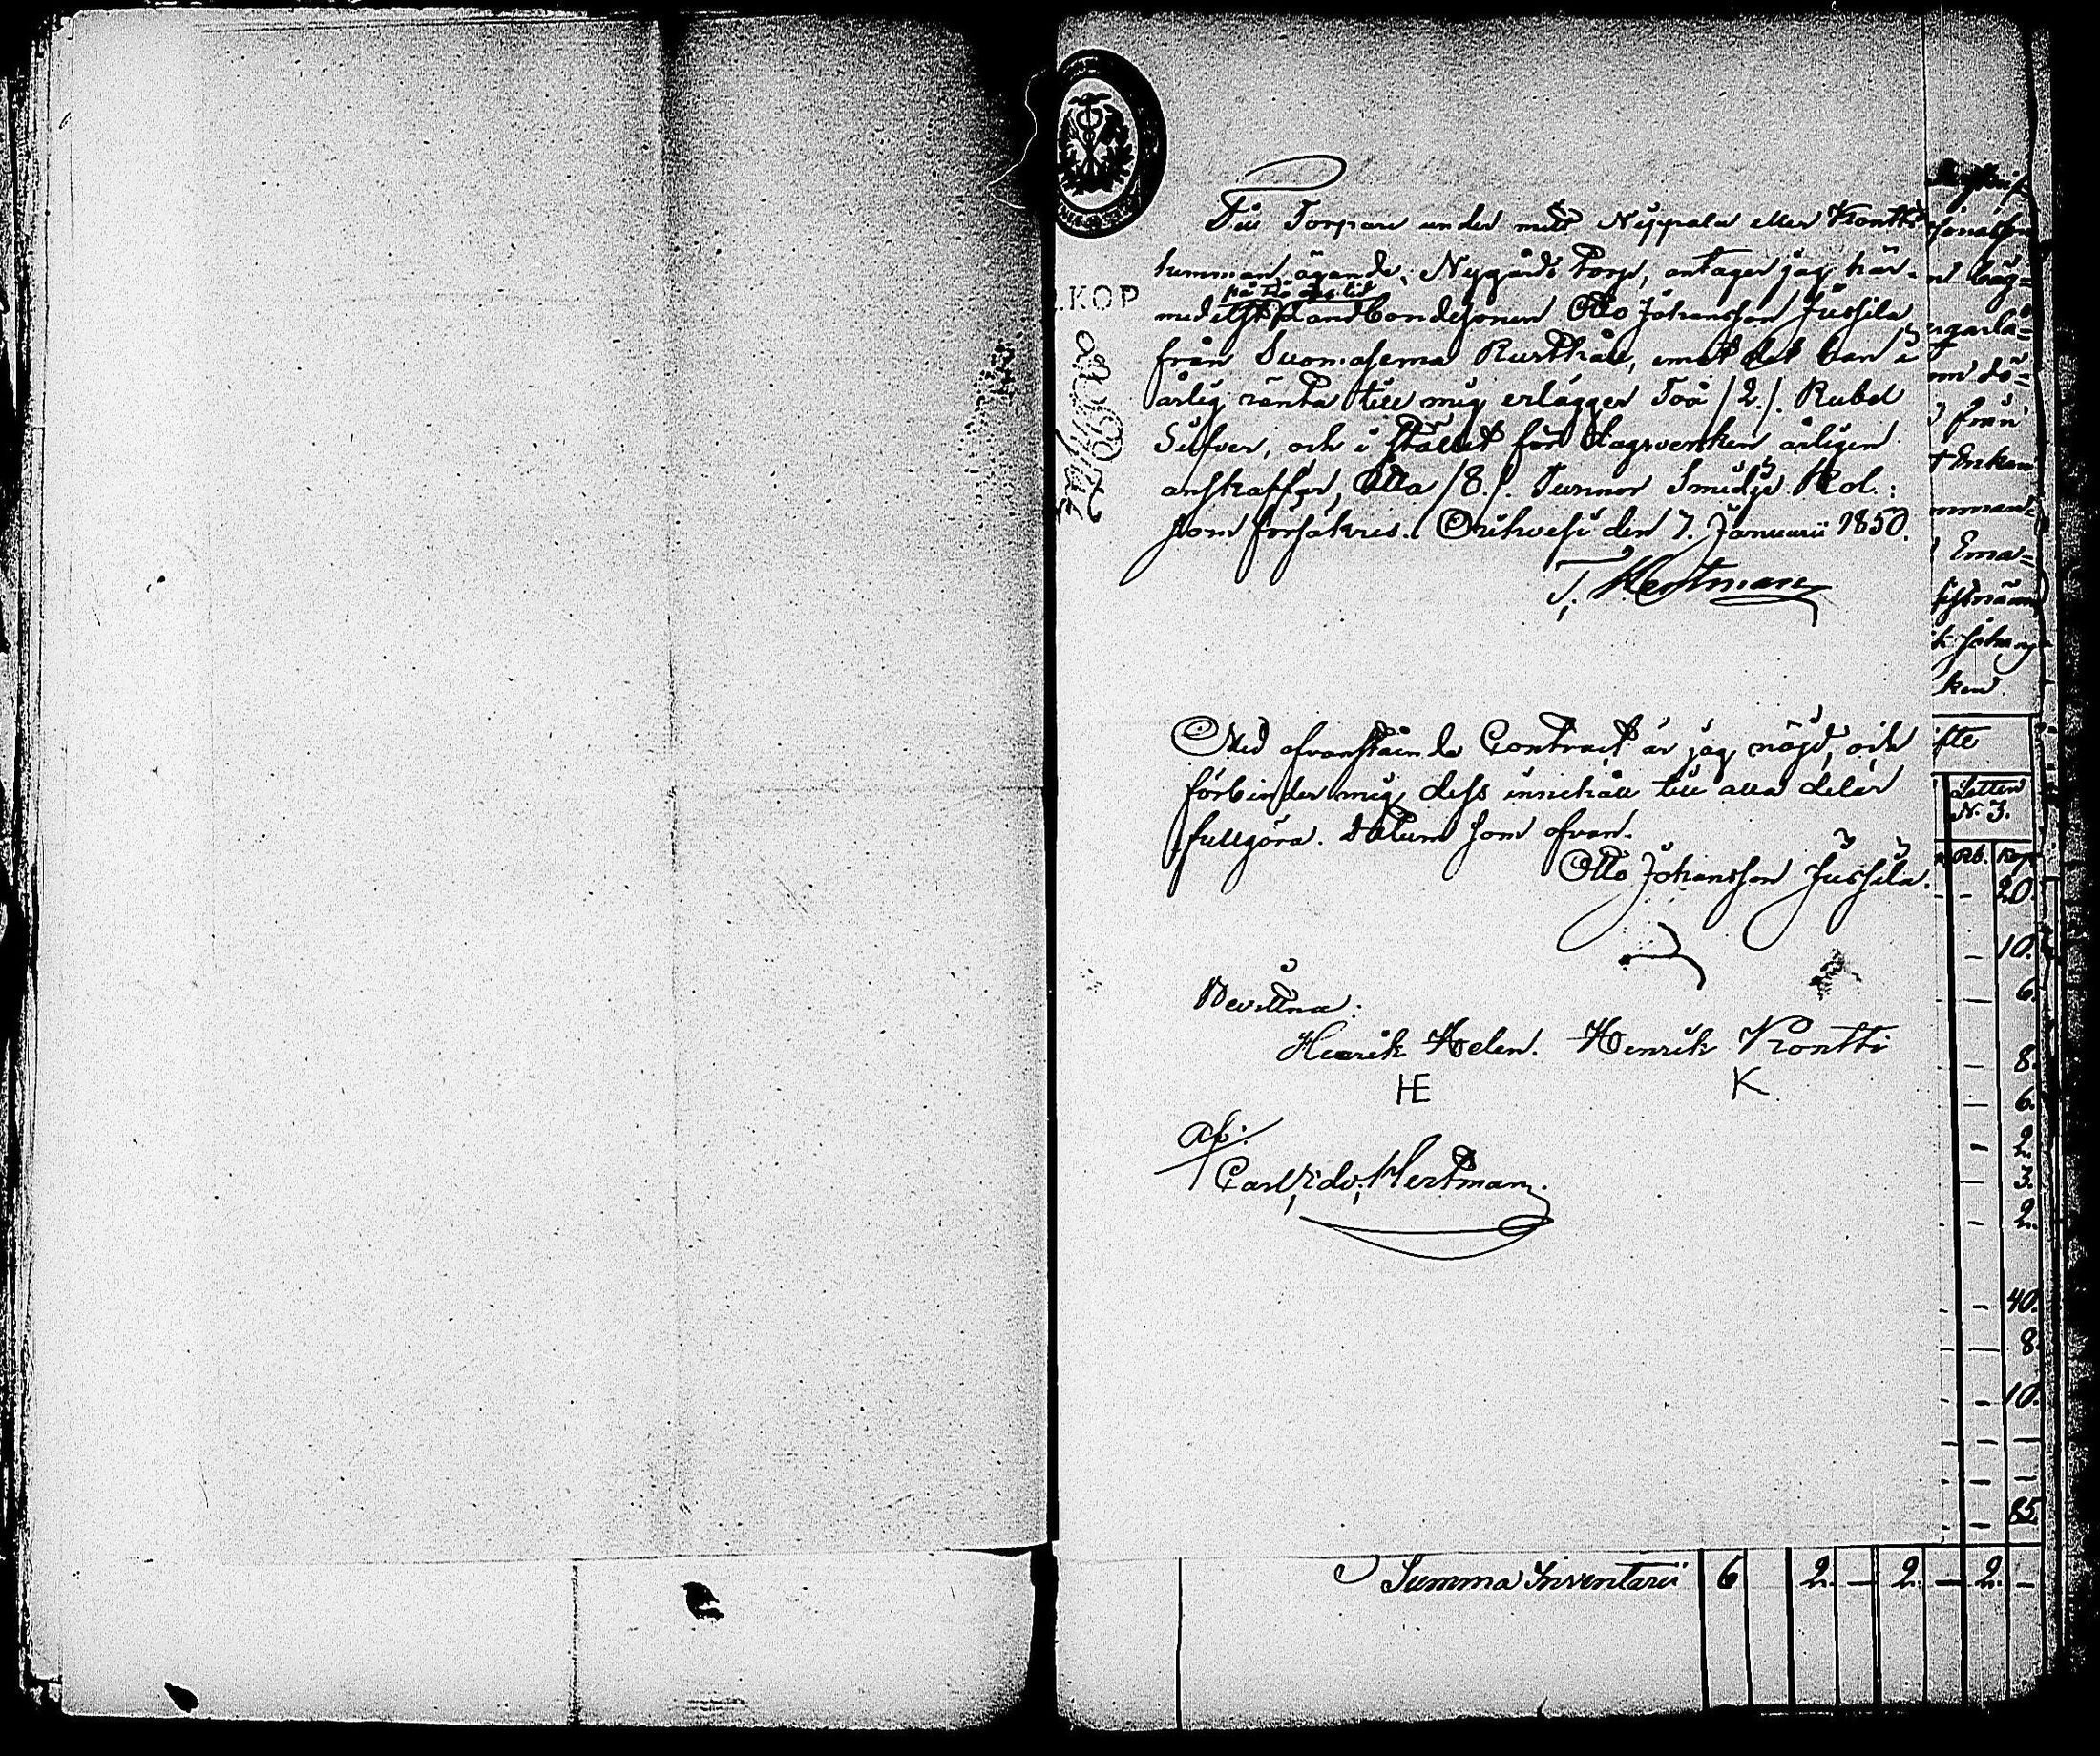 Till Torpare under mitt Nyppälä eller Kontti
hemman ägande, Nygårds Torp, antager jag här-
på två års tid
medelst Landbondesonen Otto Johansson Jussila
från Suomasema Rusthåll, emot det han i
årlig ränta till mig erlägger Två /2./. Rubel
Silfver, och i stället för dagsverken årligen
anskaffar, Åtta /8./. Tunnor Smidje Kol.:
som försäkres. Orihvesi den 7. Januarii 1850.
T. Hertman
KOP
Med ofvanstående Contract är jag nöjd, och
förbinder mig dess innehåll till alla delar
fullgöra. Datum som ofvan.
Otto Johansson Jussila.
Bevittna:
Henrik Helen. Henrik Kontti
HE K
Af.
Carl Hertman.
n bäg=
om dö=
från
Enkan
Ema=
ken.
fte
Litten
N. 3.
Rb. Kop
20.
10.
6.
8.
6.
2.
3.
2.
40.
8.
10.
85.
Summa Inventarii 6 2. — 2. — 2. —